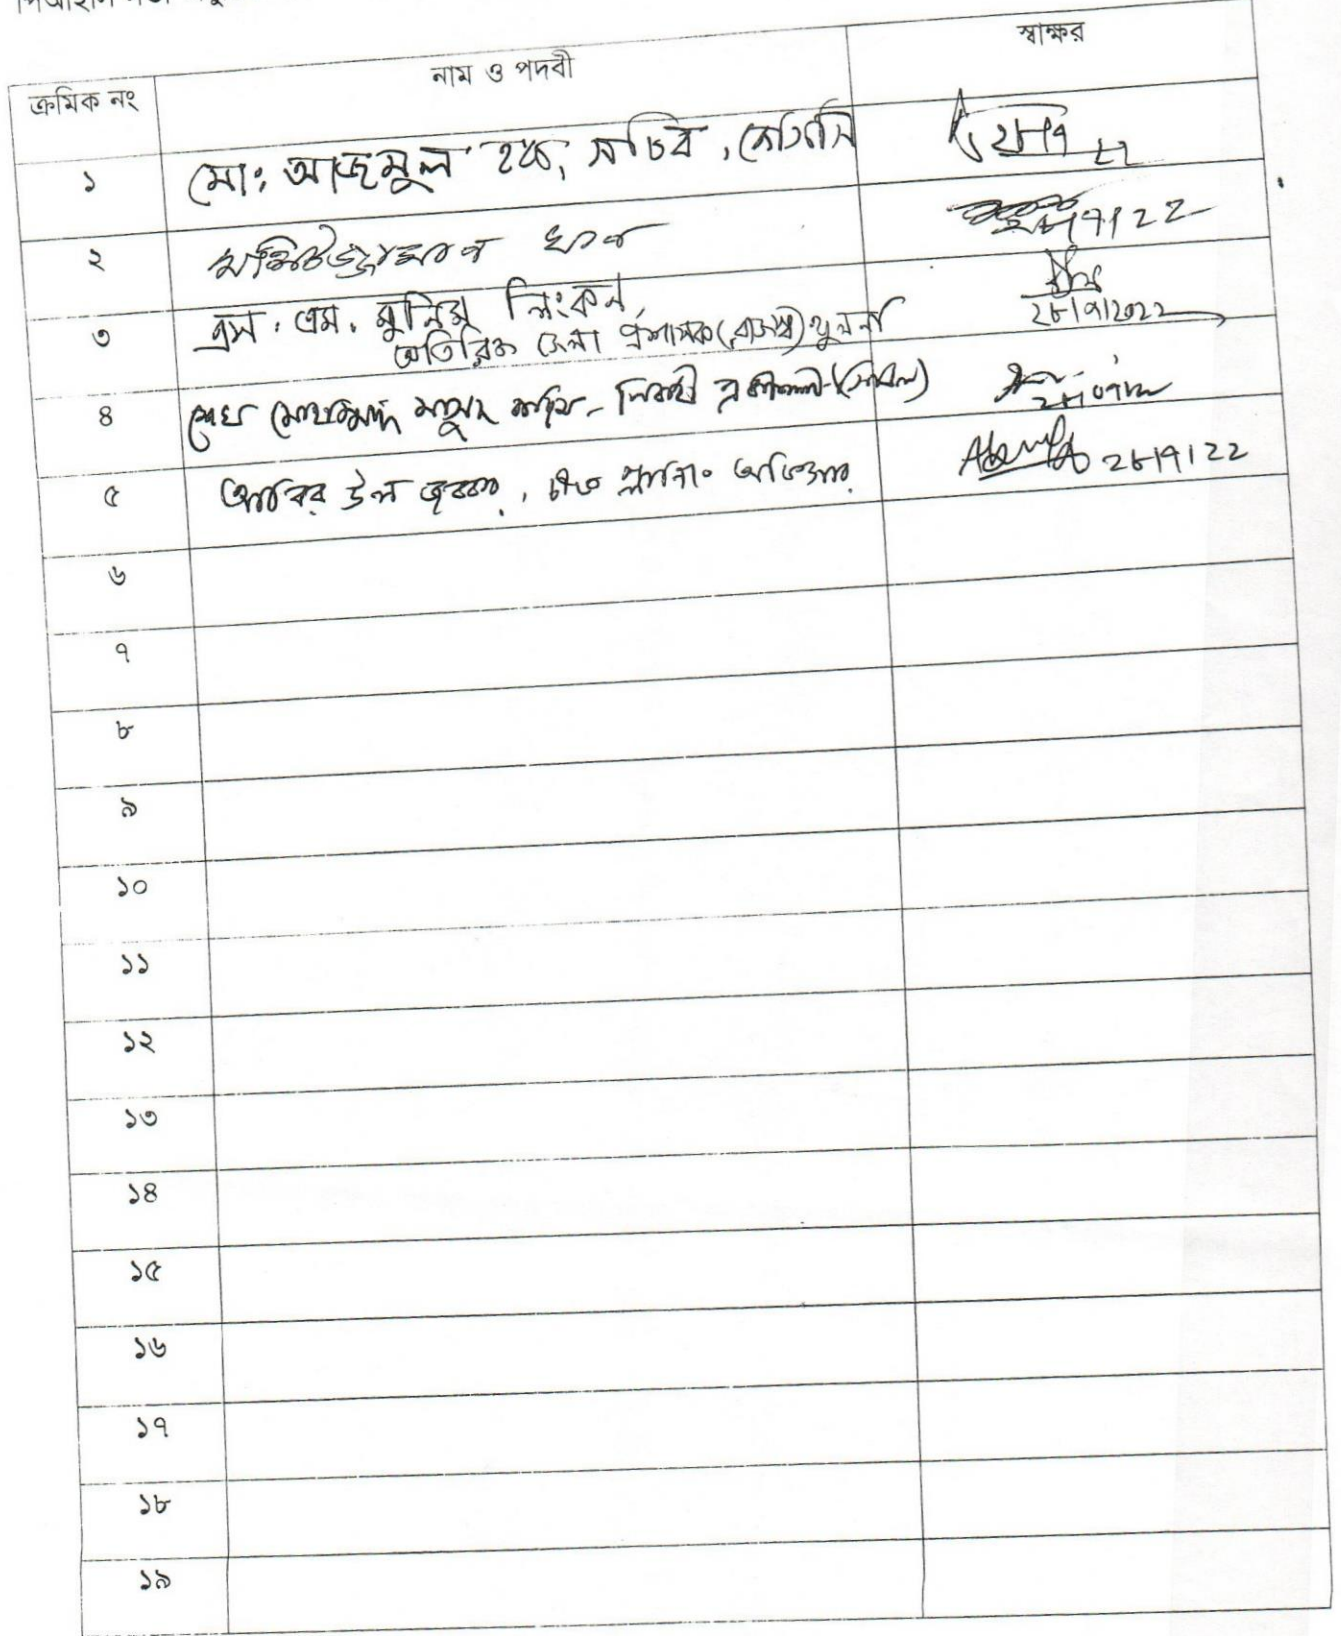 ক্রমিক নং নাম ও পদবী স্বাক্ষর
১ মোঃ আজমুল হক, সচিব, কেসিসি ২৮/৭ ২২
২ খান ২৮/৭/২২
৩ এস. এম. মুনিম লিংকন,
অতিরিক্ত জেলা প্রশাসক (রাজস্ব) খুলনা ২৮/৭/২০২২
৪ শেখ মোহাম্মদ মাসুদ করিম - নির্বাহী প্রকৌশলী (সিভিল)
৫ আবির উল জব্বার, চীফ প্লানিং অফিসার ২৮/৭/২২
৬
৭
৮
৯
১০
১১
১২
১৩
১৪
১৫
১৬
১৭
১৮
১৯